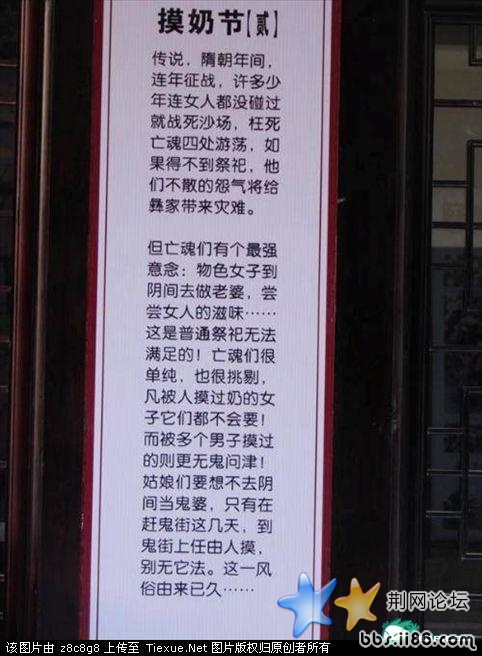 摸奶节【贰】
传说，隋朝年间，
连年征战，许多少
年连女人都没碰过
就战死沙场，枉死
亡魂四处游荡，如
果得不到祭祀，他
们不散的怨气将给
彝家带来灾难。
但亡魂们有个最强
意念：物色女子到
阴间去做老婆，尝
尝女人的滋味……
这是普通祭祀无法
满足的！亡魂们很
单纯，也很挑剔，
凡被人摸过奶的女
子它们都不会要！
而被多个男子摸过
的则更无鬼问津！
姑娘们要想不去阴
间当鬼婆，只有在
赶鬼街这几天，到
鬼街上任由人摸，
别无它法。这一风
俗由来已久……
荆网论坛
bbs.jj86.com
该图片由 z8c8g8 上传至 Tiexue.Net 图片版权归原创者所有